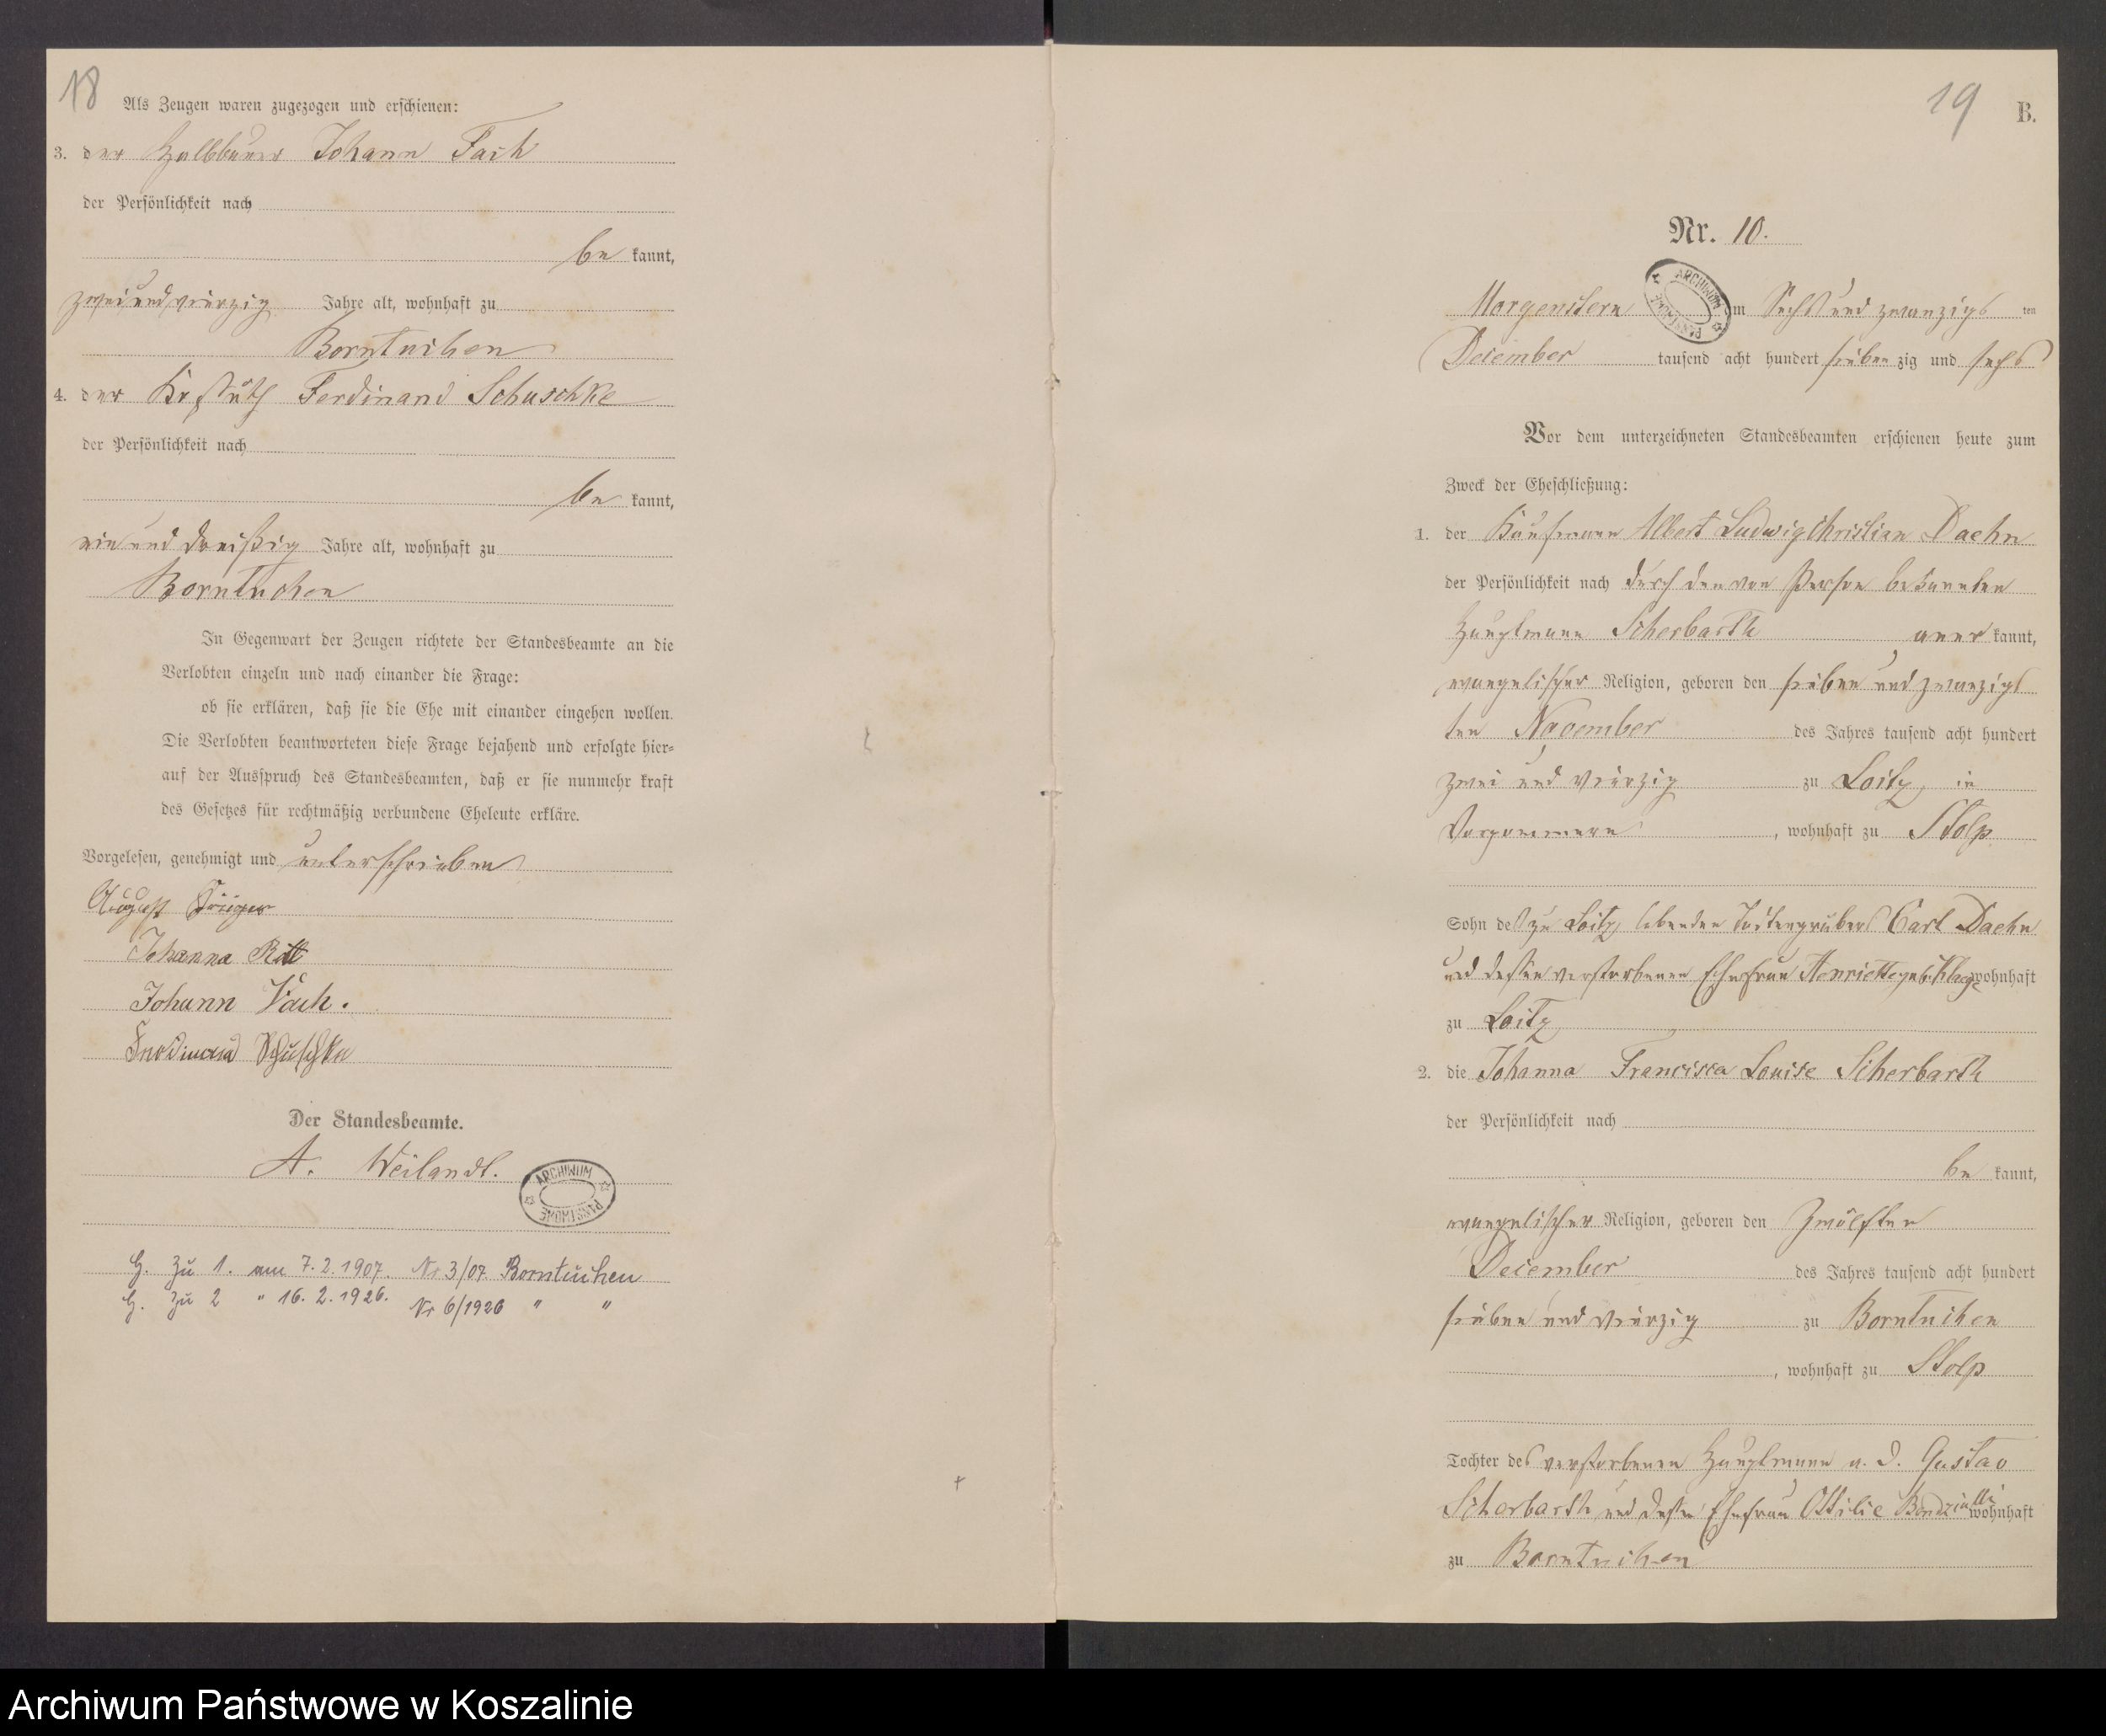 18
Als Zeugen waren zugezogen und erschienen:
3. der Halbbauer Johann Fach
der Persönlichkeit nach
be kannt,
zwei und vierzig Jahre alt, wohnhaft zu
Borntuchen
4. der Ferdinand Schuschke
der Persönlichkeit nach
be kannt,
ein und dreißig Jahre alt, wohnhaft zu
Borntuchen
In Gegenwart der Zeugen richtete der Standesbeamte an die
Verlobten einzeln und nach einander die Frage:
ob sie erklären, daß sie die Ehe mit einander eingehen wollen.
Die Verlobten beantworteten diese Frage bejahend und erfolgte hier-
auf der Ausspruch des Standesbeamten, daß er sie nunmehr kraft
des Gesetzes für rechtmäßig verbundene Eheleute erkläre.
Vorgelesen, genehmigt und unterschrieben
August
Johanna
Johann Fach.
Ferdinand Schuschke
Der Standesbeamte.
A. Weilandt.
ARCHIWUM PAŃSTWOWE
H. Zu 1. am 7.2.1907. Nr 3/07 Borntuchen
H. Zu 2 " 16.2.1926. Nr 6/1926 " "
19
B.
Nr. 10.
Morgenstern am Sechs und zwanzigs ten
December tausend acht hundert sieben zig und sechs
ARCHIWUM PAŃSTWOWE
Vor dem unterzeichneten Standesbeamten erschienen heute zum
Zweck der Eheschließung:
1. der Kaufmann Albert Ludwig Christian Daehn
der Persönlichkeit nach durch den von Person bekannten
Hauptmann Scherbarth aner kannt,
evangelischer Religion, geboren den sieben und zwanzigs
ten November des Jahres tausend acht hundert
zwei und vierzig zu Loitz in
Vorpommern, wohnhaft zu Stolp
Sohn des zu Loitz lebenden Todtengräbers Carl Daehn
und dessen verstorbenen Ehefrau Henriette geb. wohnhaft
zu Loitz
2. die Johanna Francisca Louise Scherbarth
der Persönlichkeit nach
be kannt,
evangelischer Religion, geboren den Zwölften
December des Jahres tausend acht hundert
sieben und vierzig zu Borntuchen
, wohnhaft zu Stolp
Tochter des verstorbenen Hauptmann a. D. Gustav
Scherbarth und dessen Ehefrau Ottilie wohnhaft
zu Borntuchen
Archiwum Państwowe w Koszalinie